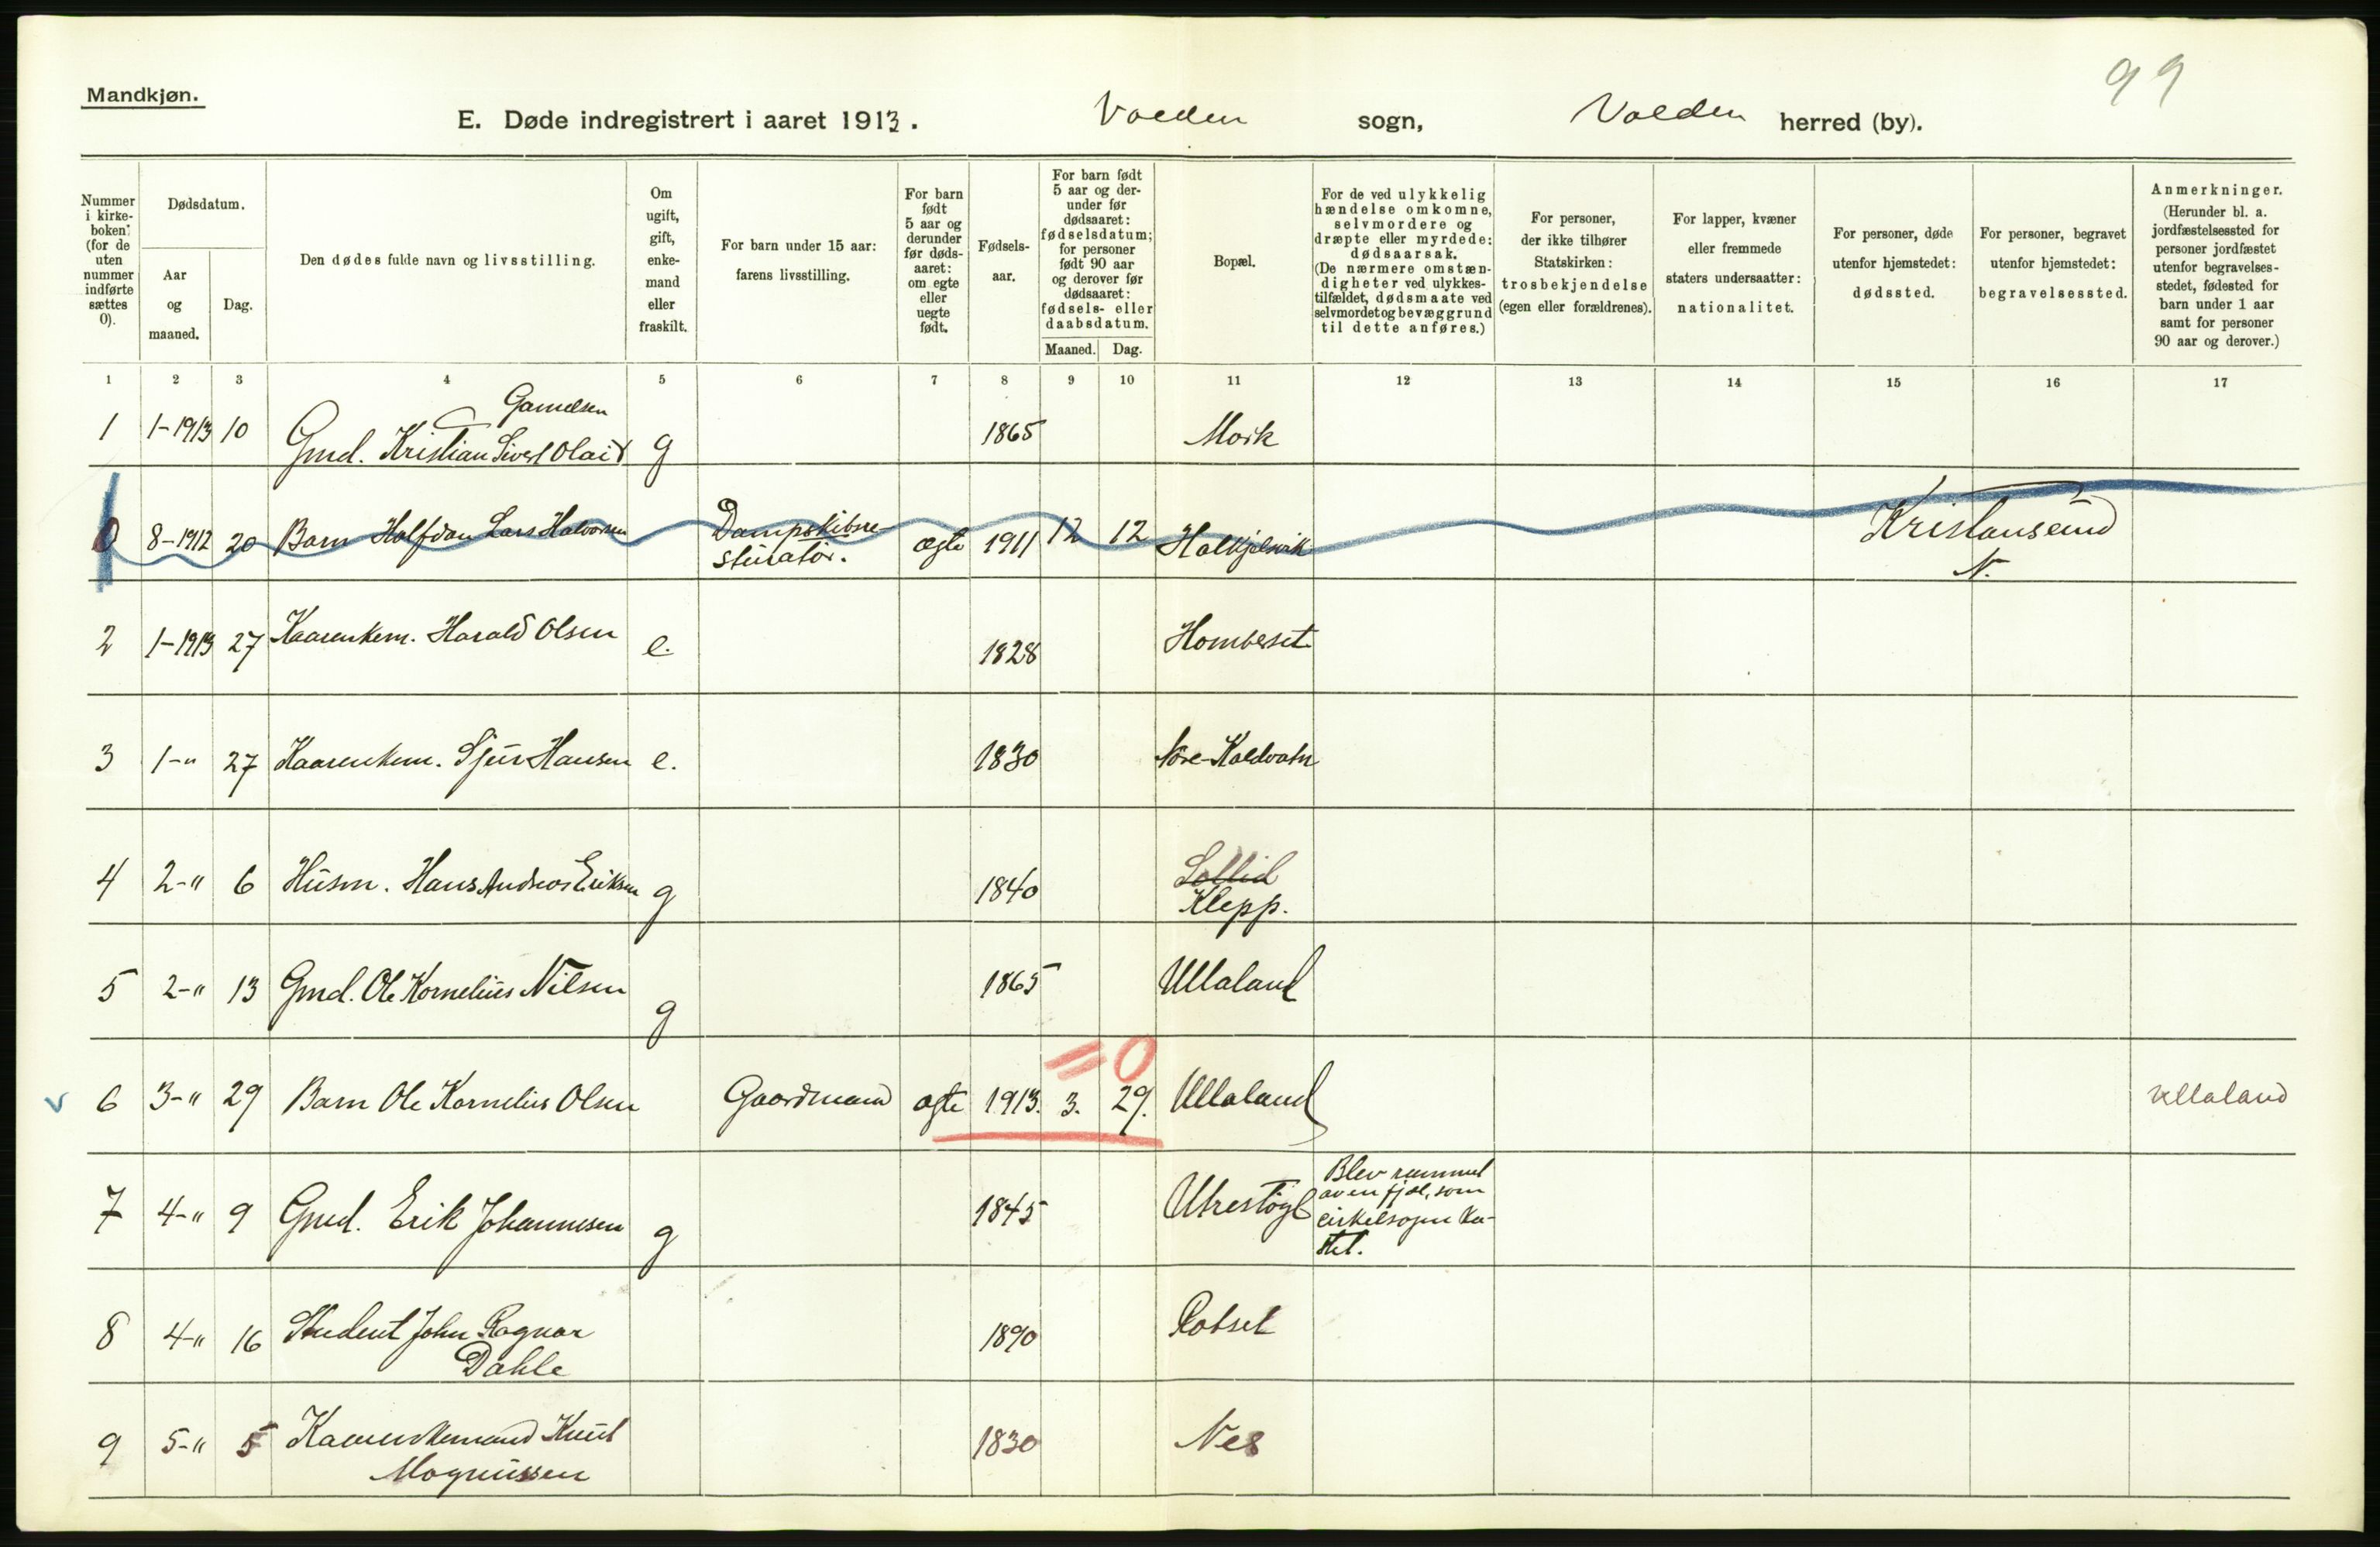 99
Mandkjøn.
E. Døde indregistrert i aaret 1913. Volden sogn, Volden herred (by).
Nummer i kirke-boken: (for de uten nummer indførte sættes 0).
Dødsdatum.
Aar og maaned.
Dag.
Den dødes fulde navn og livsstilling.
Om ugift, gift, enke-mand eller fraskilt.
For barn under 15 aar: farens livsstilling.
For barn født 5 aar og derunder før døds-aaret: om egte eller uegte født.
Fødsels-aar.
For barn født 5 aar og der-under før dødsaaret: fødselsdatum; for personer født 90 aar og derover før dødsaaret: fødsels- eller daabsdatum.
Maaned. Dag.
Bopæl.
For de ved ulykkelig hændelse omkomne, selvmordere og dræpte eller myrdede: dødsaarsak. (De nærmere omstæn-digheter ved ulykkes-tilfældet, dødsmaate ved selvmordet og bevæggrund til dette anføres.)
For personer, der ikke tilhører Statskirken: trosbekjendelse (egen eller forældrenes).
For lapper, kvæner eller fremmede staters undersaatter: nationalitet.
For personer, døde utenfor hjemstedet: dødssted.
For personer, begravet utenfor hjemstedet: begravelsessted.
Anmerkninger. (Herunder bl. a. jordfæstelsessted for personer jordfæstet utenfor begravelses-stedet, fødested for barn under 1 aar samt for personer 90 aar og derover.)
1 2 3 4 5 6 7 8 9 10 11 12 13 14 15 16 17
Gamelsen
1 1-1913 10 Gmd. Kristian Sivert Olai g 1865 Mork
0 8-1912 20 Barn Halfdan Lars Halvorsen Dampskibsre- ægte 1911 12 12 Halkjelsvik Kristiansund
sturatør. N.
2 1-1913 27 Kaarenkem. Harald Olsen e. 1828 Homberset
3 1-" 27 Kaarenkem. Sjur Hansen e. 1830 Løre-Kaldvatn
4 2-" 6 Husm. Hans Andreas Eriksen g 1840 Sollid
Klepp.
5 2-" 13 Gmd. Ole Kornelius Nilsen g 1865 Ullaland
= 0
6 3-" 29 Barn Ole Kornelius Olsen Gaardmand ægte 1913. 3. 29. Ullaland Ullaland
7 4-" 9 Gmd. Erik Johannesen g 1845 Utrestøyl Blev rammet
av en fjøl, som
cirkelsagen ka-
stet.
8 4-" 16 Student John Ragnar 1890 Rotset
Dahle
9 5-" 5 Kaarenkemand Knut 1830 Nes
Magnussen